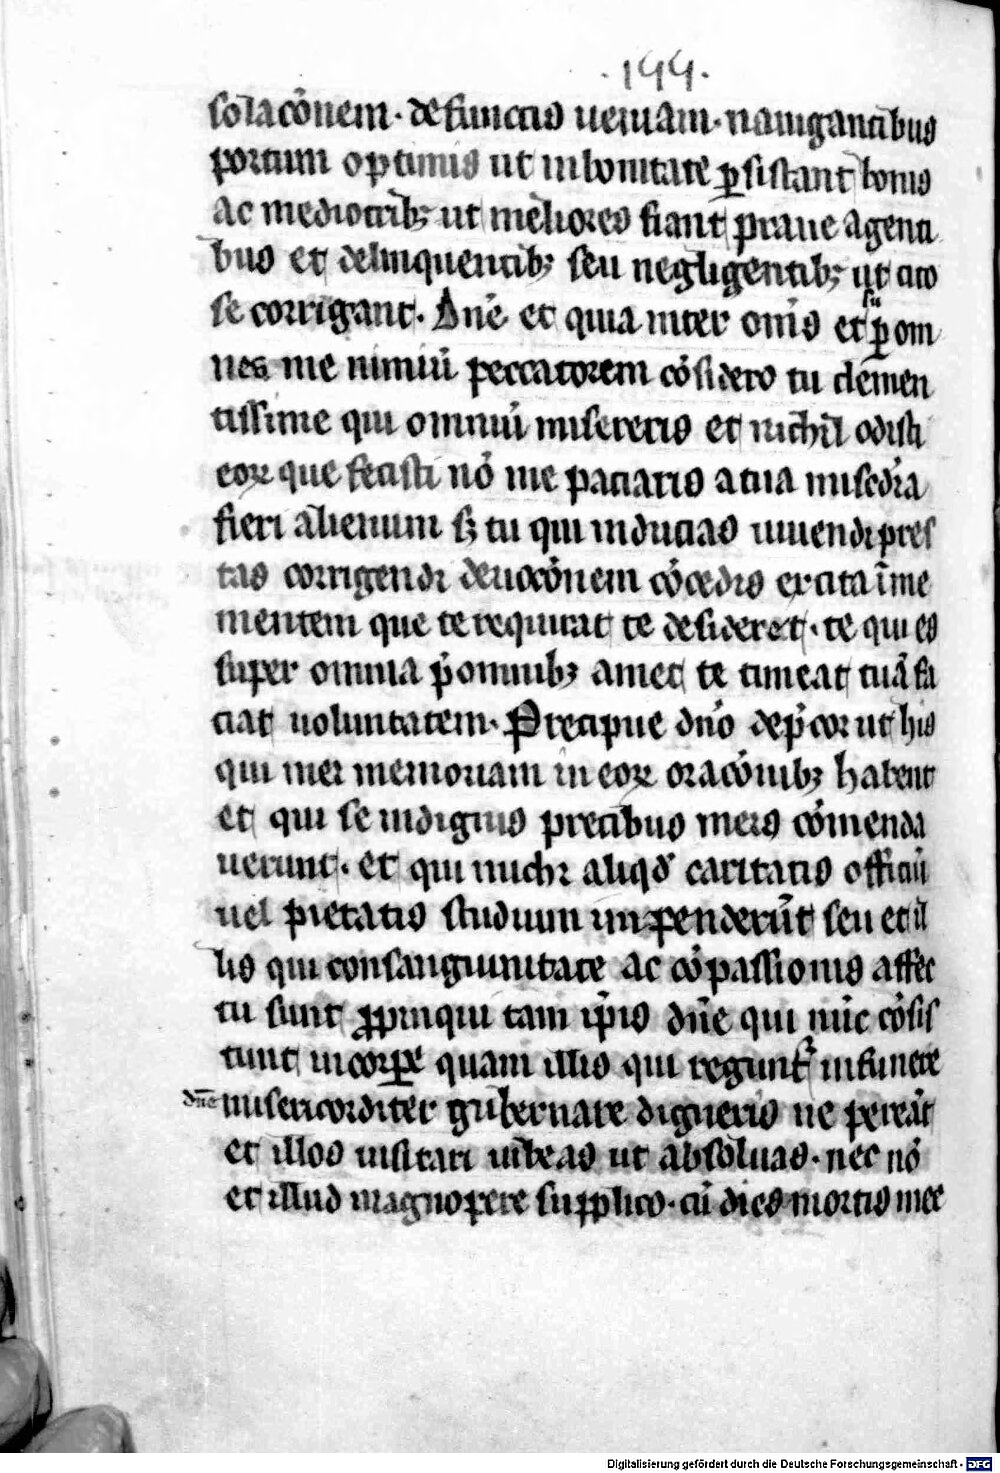 .144.
solacōnem · defunctis ueniam · nauigantibus
portum optimis ut in bonitate ꝑsistant bonis
ac mediocribꝫ ut meliores fiant praue agenti
bus et delinquentibꝫ seu negligentibꝫ ut cito
se corrigant · Dn̄e et quia inter om̄s et suꝑ om
nes me nimiū peccatorem cōsidero tu clemen
tissime qui omniū misereris et nichil odisti
eoꝝ que fecisti nō me paciaris a tua mīsedia
fieri alienum sꝫ tu qui inducias uiuendi pres
tas corrigendi deuocōnem cōcedis excita ī me
mentem que te requirat te desideret · te qui es
super omnia p̄ omnibꝫ amet te timeat tuā fa
ciat uoluntatem · Precipue dn̄o dep̄cor ut his
qui mei memoriam in eoꝝ oracōnibꝫ habent
et qui se indignis precibus meis cōmenda
uerunt · et qui michi aliqd̄ caritatis officiū
uel pietatis studium impenderūt seu et il
lis qui consanguinitate ac cōpassionis affec
tu sunt ꝓpinqui tam ip̄is dn̄e qui nūc cōsis
tunt in corꝑe quam illis qui regunt᷑ in funere
dn̄e misericorditer gubernare digneris ne pereāt
et illos uisitari iubeas ut absoluas · nec nō
et illud magnopere supplico · cū dies mortis mee
Digitalisierung gefördert durch die Deutsche Forschungsgemeinschaft - DFG